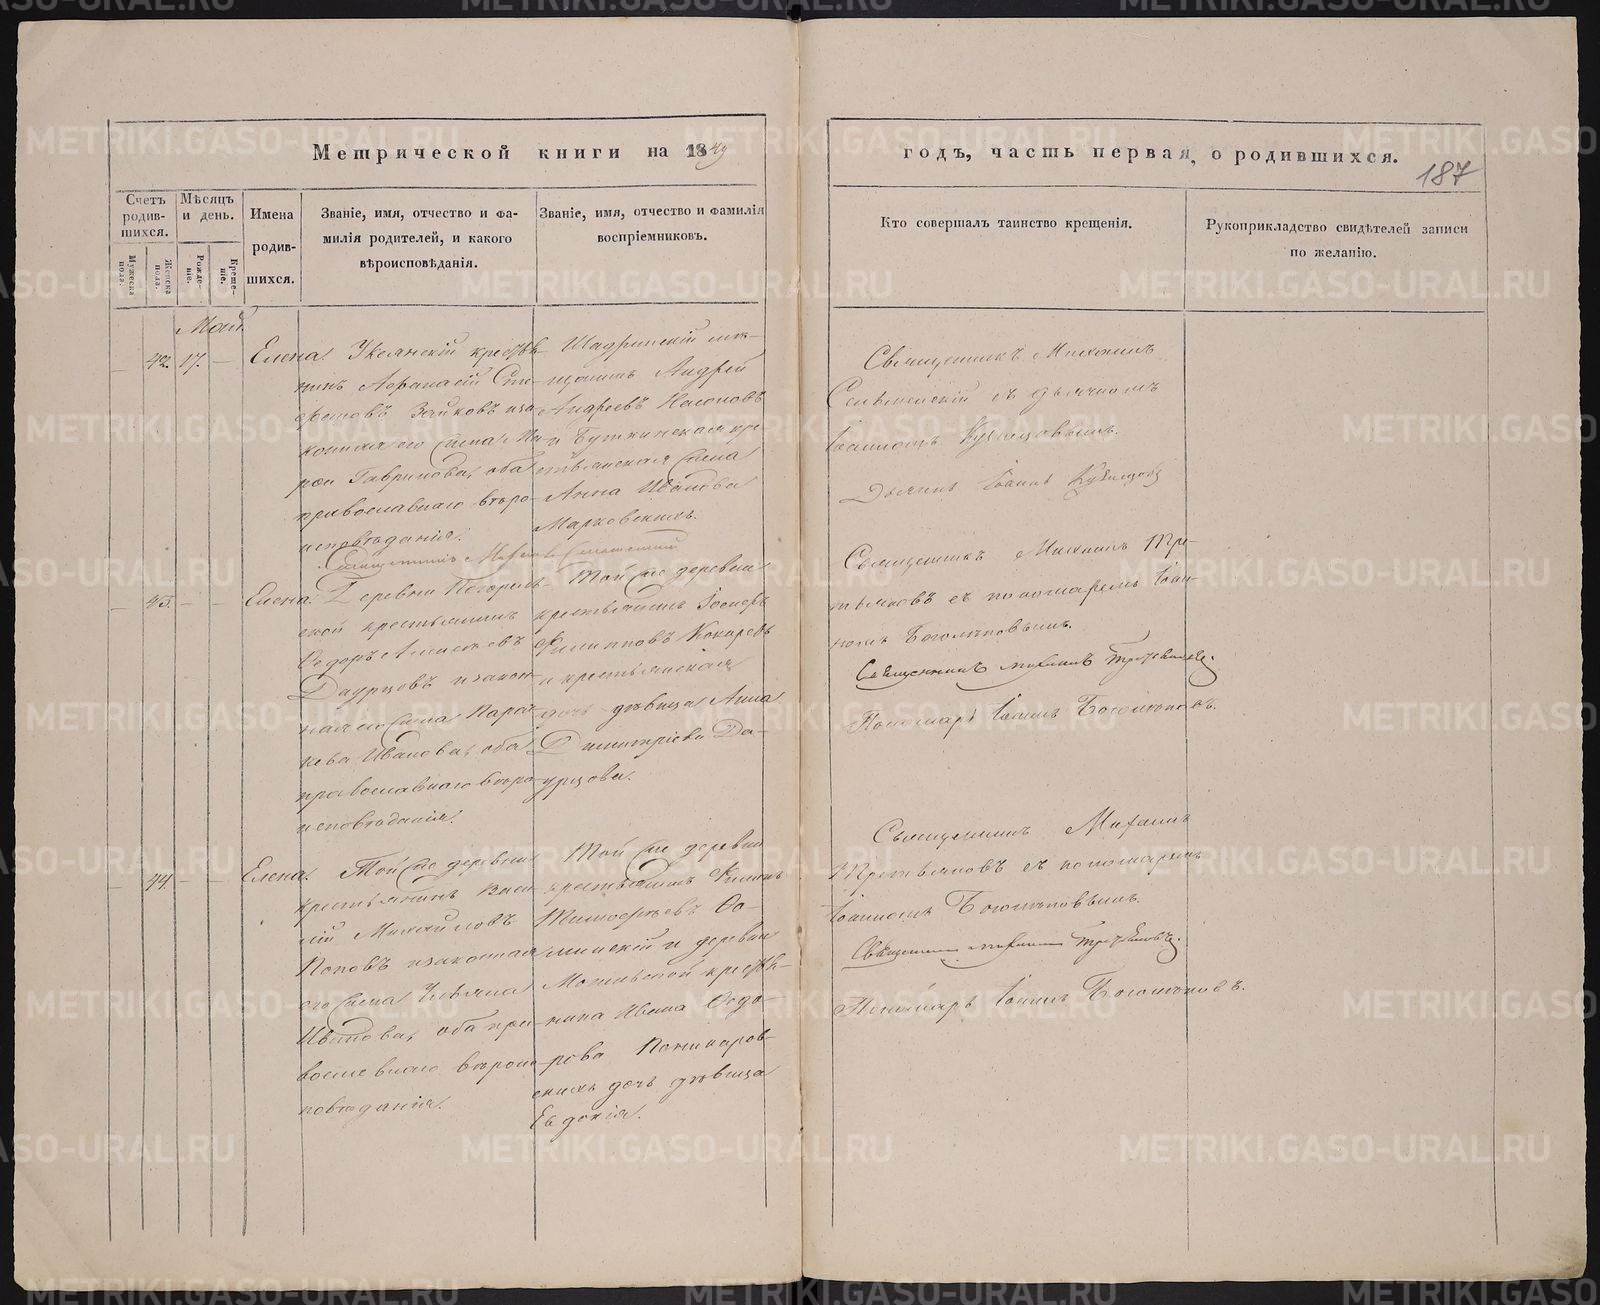 Метрической книги на 1849
годъ, часть первая, о родившихся.
187
Счетъ родив-шихся.
Мужеска пола.
Женска пола.
Мѣсяцъ и день.
Рожде-ніе.
Креще-ніе.
Имена
родив-
шихся.
Званіе, имя, отчество и фа-
милія родителей, и какого
вѣроисповѣданія.
Званіе, имя, отчество и фамилія
воспріемниковъ.
Кто совершалъ таинство крещенія.
Рукоприкладство свидѣтелей записи
по желанію.
Май.
42. 17. —
Елена.
Уксянскій крестья-
нинъ Афанасій
Зайковъ и за-
конная его жена Ма-
Гаврилова, оба
православнаго вѣро-
исповѣданія.
Шадринскій мѣ-
щанинъ Андрей
Андреевъ Насоновъ
и Буткинская кре-
стьянская жена
Анна Иванова
Марковскихъ.
Священникъ Михаилъ
съ дьячкомъ
Іоанномъ Кузнецовымъ.
Дьячекъ Іоаннъ Кузнецовъ
Священникъ Михаилъ
43. — —
Елена.
Деревни
ской крестьянинъ
Ѳедоръ Алексѣевъ
Даурцовъ и закон-
ная его жена Парас-
кева Иванова, оба
православнаго вѣро-
исповѣданія.
Той же деревни
крестьянинъ Іосифъ
Филипповъ Кокаревъ
и крестьянская
дочь дѣвица Анна
Димитріева Да-
урцова.
Священникъ Михаилъ Тре-
тьяковъ съ пономаремъ Іоан-
номъ Боголѣповымъ.
Священникъ Михаилъ Третьяковъ.
Пономарь Іоаннъ Боголѣповъ.
44. — —
Елена.
Той же деревни
крестьянинъ Васи-
лій Михайловъ
Поповъ и законная
его жена Ульяна
Иванова, оба пра-
вославнаго вѣроис-
повѣданія.
Той же деревни
крестьянинъ Филипъ
Тимофѣевъ Ѳо-
минскій и деревни
крестья-
нина Ивана Ѳедо-
рова
скихъ дочь дѣвица
Евдокія.
Священникъ Михаилъ
Третьяковъ съ пономаремъ
Іоанномъ Боголѣповымъ.
Священникъ Михаилъ Третьяковъ.
Пономарь Іоаннъ Боголѣповъ.
METRIKI.GASO-URAL.RU